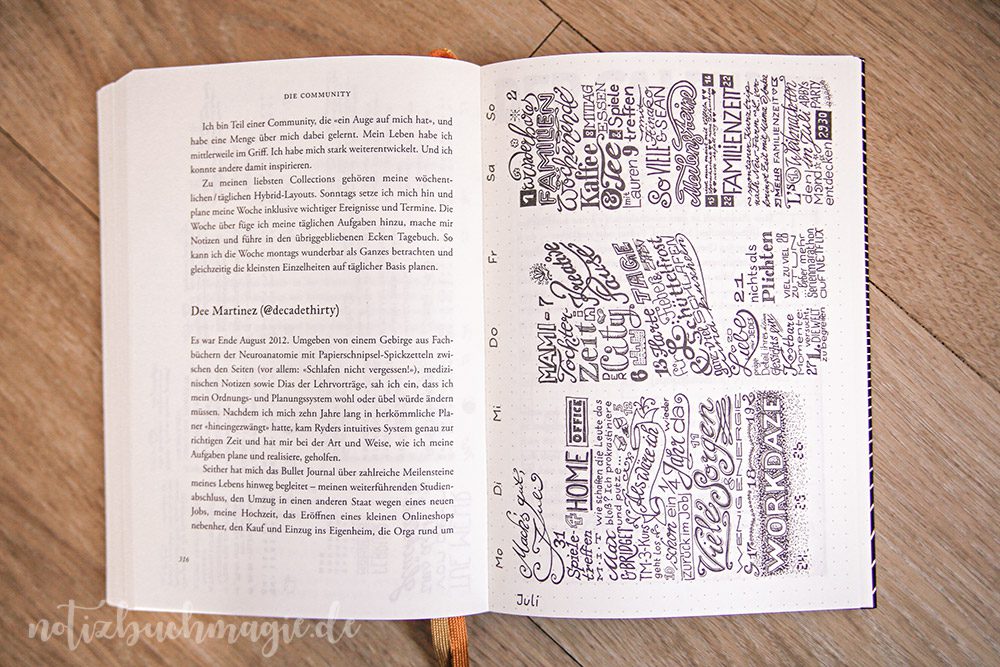 DIE COMMUNITY
Ich bin Teil einer Community, die «ein Auge auf mich hat», und
habe eine Menge über mich dabei gelernt. Mein Leben habe ich
mittlerweile im Griff. Ich habe mich stark weiterentwickelt. Und ich
konnte andere damit inspirieren.
Zu meinen liebsten Collections gehören meine wöchent-
lichen/täglichen Hybrid-Layouts. Sonntags setze ich mich hin und
plane meine Woche inklusive wichtiger Ereignisse und Termine. Die
Woche über füge ich meine täglichen Aufgaben hinzu, mache mir
Notizen und führe in den übriggebliebenen Ecken Tagebuch. So
kann ich die Woche montags wunderbar als Ganzes betrachten und
gleichzeitig die kleinsten Einzelheiten auf täglicher Basis planen.
Dee Martinez (@decadethirty)
Es war Ende August 2012. Umgeben von einem Gebirge aus Fach-
büchern der Neuroanatomie mit Papierschnipsel-Spickzetteln zwi-
schen den Seiten (vor allem: «Schlafen nicht vergessen!»), medizi-
nischen Notizen sowie Dias der Lehrvorträge, sah ich ein, dass ich
mein Ordnungs- und Planungssystem wohl oder übel würde ändern
müssen. Nachdem ich mich zehn Jahre lang in herkömmliche Pla-
ner «hineingezwängt» hatte, kam Ryders intuitives System genau zur
richtigen Zeit und hat mir bei der Art und Weise, wie ich meine
Aufgaben plane und realisiere, geholfen.
Seither hat mich das Bullet Journal über zahlreiche Meilensteine
meines Lebens hinweg begleitet – meinen weiterführenden Studien-
abschluss, den Umzug in einen anderen Staat wegen eines neuen
Jobs, meine Hochzeit, das Eröffnen eines kleinen Onlineshops
nebenher, den Kauf und Einzug ins Eigenheim, die Orga rund um
316
Juli
Mo
Di
Mi
Do
Fr
Sa
So
Mach's gut,
31
Spiele-
treffen
MIT
Max
HOME
OFFICE
Wie schaffen die Leute das
bloß? Ich prokrastiniere
und putze...
& BRIDGET
TM-3-Kurs
geht los
schon ein 1/4 Jahr da
zurück im Job
wieder
Viele Sorgen
WENIG ENERGIE
17
18
19
WORKDAZE
24
25
26
MAMI - 7
Tochter-
Zeit
Kreative
DER
City
Pause
6
TAGE
13
Liebe
21
nichts als
Plichten
VIEL ZU VIEL
ZU TUN
28
lieber mehr
Serienmarathon
AUF NETFLIX
Kostbare
Momente:
27
L.
versucht,
DIE WELT
zu begreifen
1
wunderbare
FAMILIEN
Wochenende
2
Kaffee
& Tee
MITTAG
ESSEN
& Spiele
mit
Lauren
9 treffen
SO VIEL ESSEN
Meilensteine
15
16
22
FAMILIENZEIT
23
MEHR FAMILIENZEIT
L's
im Juli
ABBI'S
PARTY
den
Mond
entdecken
29
30
notizbuchmagie.de